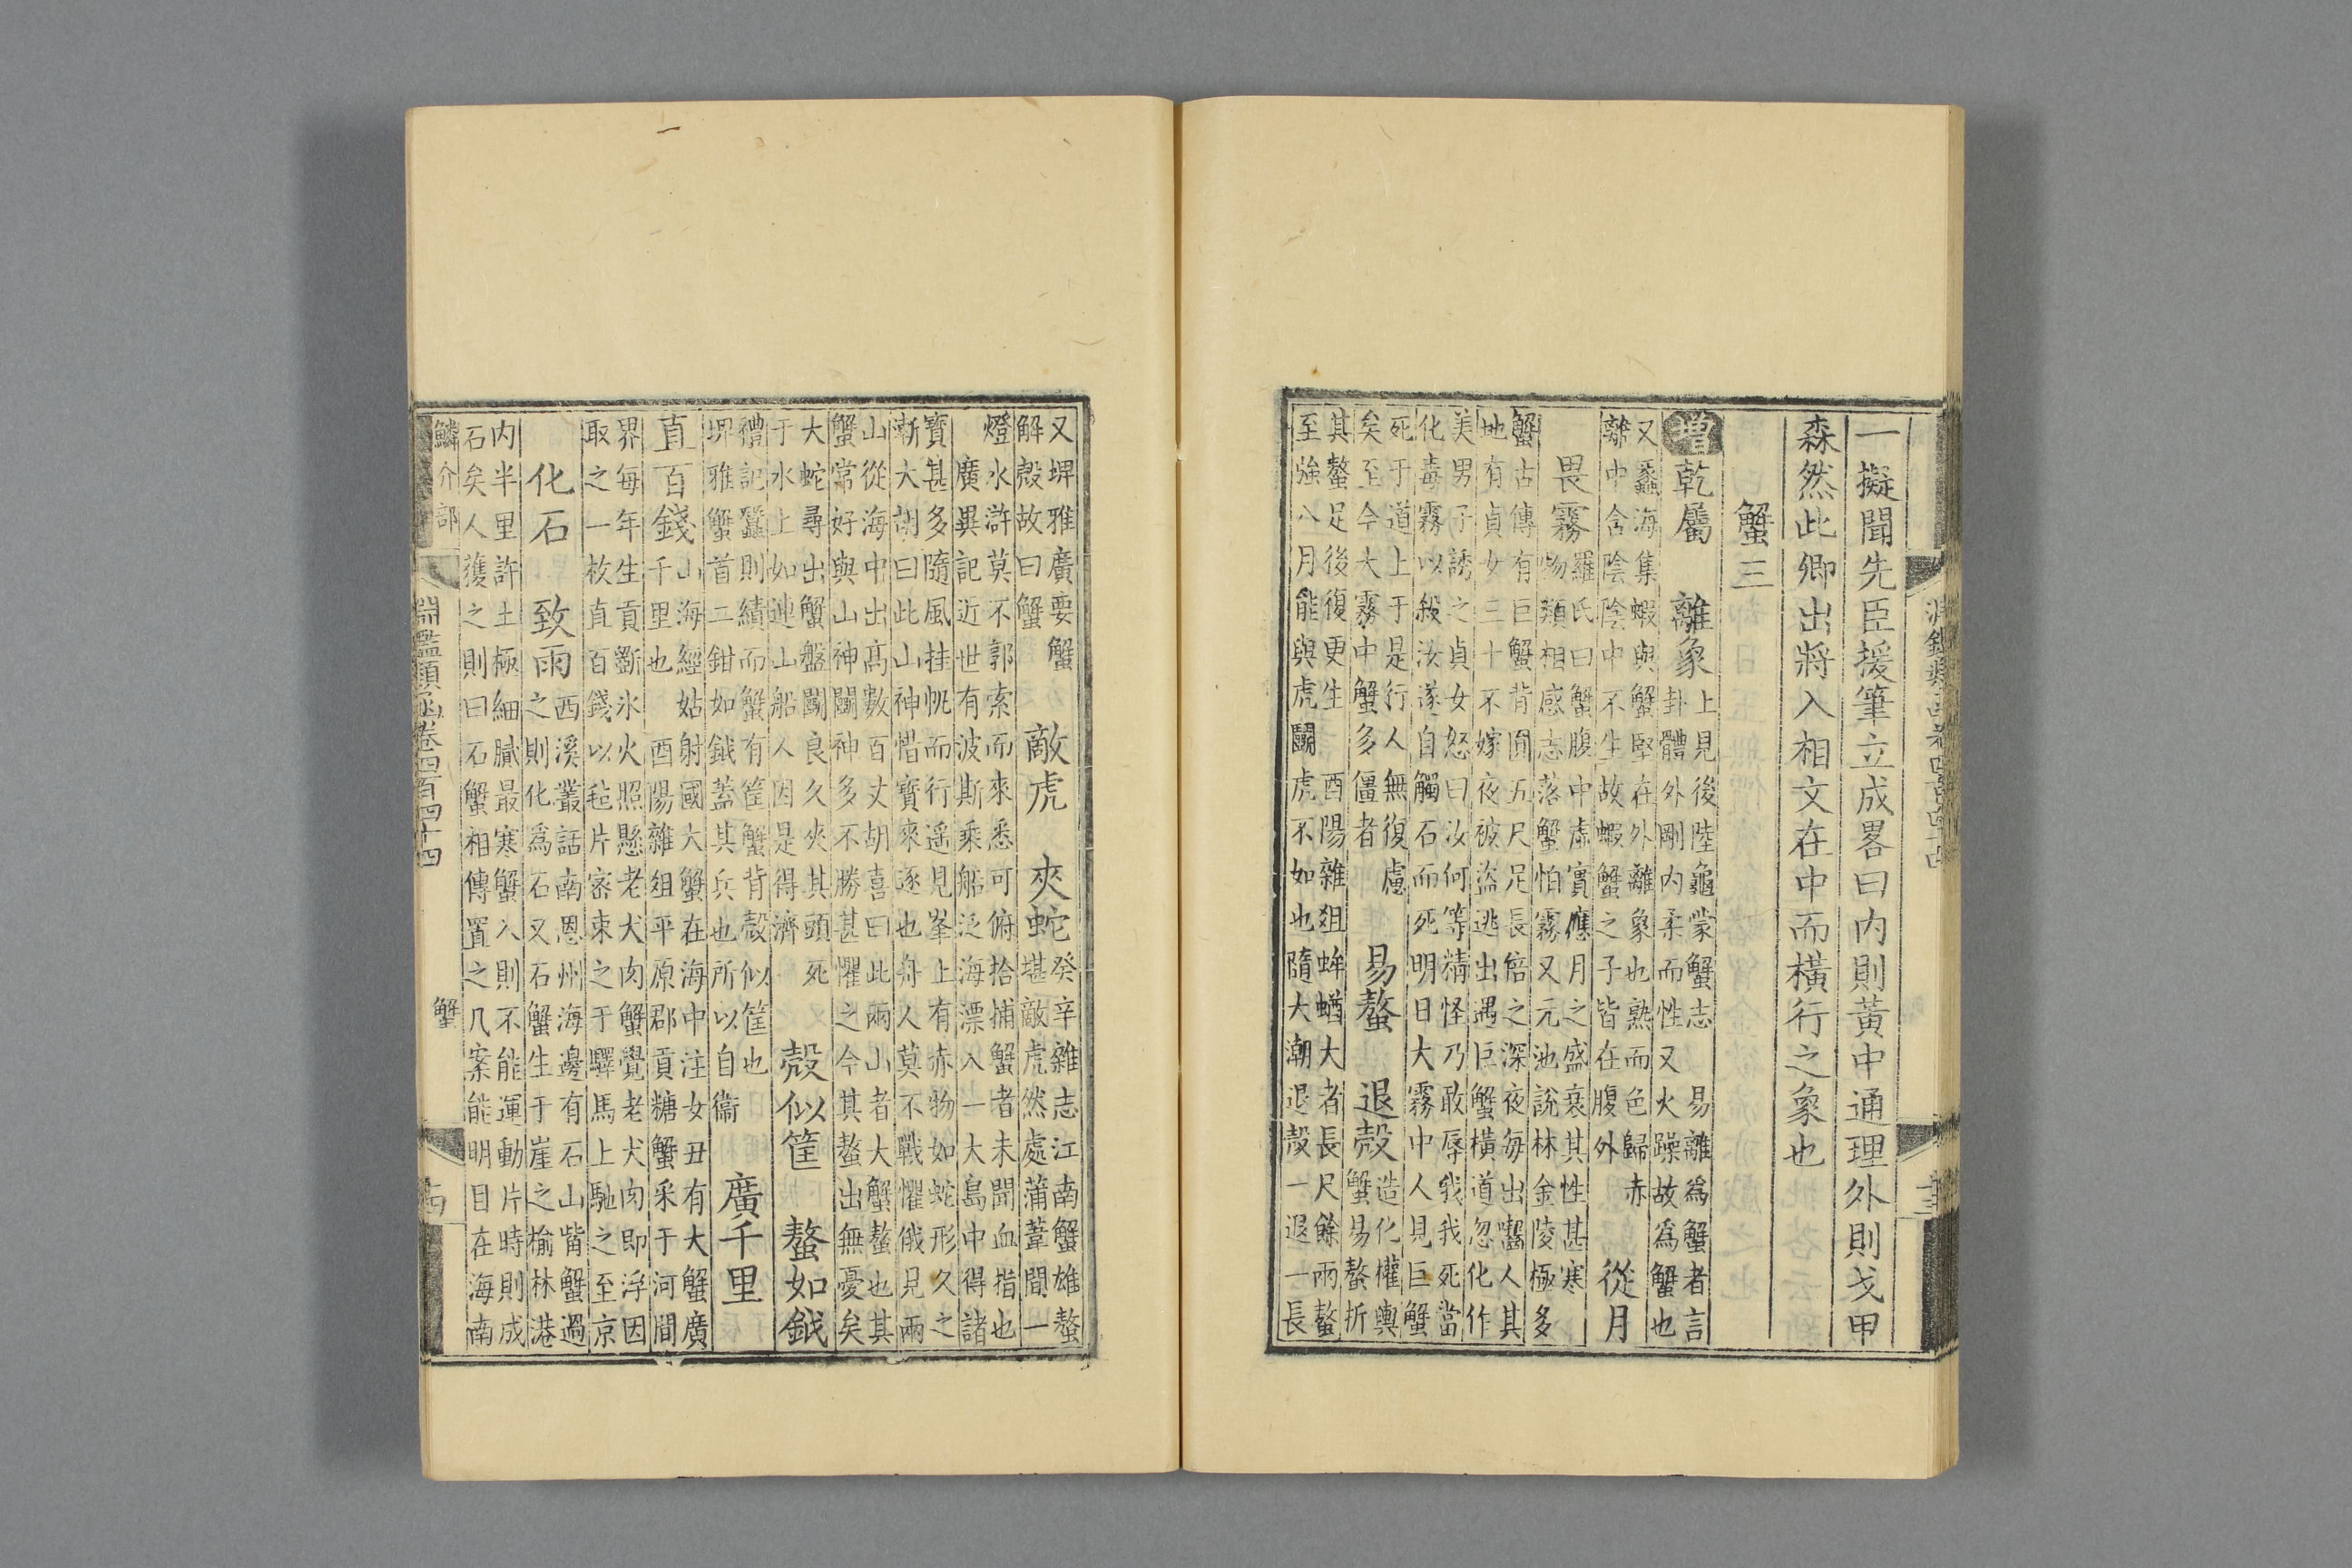 一擬聞先臣援筆立成畧曰内則黃中通理外則戈甲
森然此卿出將入相文在中而橫行之象也
蟹三
增乾屬　離象上見後陸龜蒙蟹志　易離爲蟹者言
卦體外剛内柔而性又火躁故爲蟹也
又蠡海集蝦與蟹堅在外離象也熟而色歸赤
離中含陰陰中不生故蝦蟹之子皆在腹外
從月
畏霧羅氏曰蟹腹中虛實應月之盛衰其性甚寒
物類相感志落蟹怕霧又元池說林金陵極多
蟹古傳有巨蟹背圓五尺足長倍之深夜每出嚙人其
地有貞女三十不嫁夜被盜逃出遇巨蟹橫道忽化作
美男子誘之貞女怒曰汝何等精怪乃敢辱我我死當
化毒霧以殺汝遂自觸石而死明日大霧中人見巨蟹
死于道上于是行人無復慮
矣至今大霧中蟹多僵者
易螯　退殼造化權輿
蟹易螯折
其螯足後復更生　酉陽雜俎蝤蛑大者長尺餘兩螯
至強八月能與虎鬭虎不如也隨大潮退殼一退一長
淵鑑類函卷四百四十四
又埤雅廣要蟹
解殼故曰蟹
敵虎　夾蛇癸辛雜志江南蟹雄螯
堪敵虎然處蒲葦間一
燈水滸莫不郭索而來悉可俯拾捕蟹者未聞血指也
廣異記近世有波斯乘船泛海漂入一大島中得諸
寶甚多隨風挂帆而行遥見峯上有赤物如蛇形久之
漸大胡曰此山神惜寶來逐也舟人莫不戰懼俄見兩
山從海中出高數百丈胡喜曰此兩山者大蟹螯也其
蟹常好與山神鬭神多不勝甚懼之今其螯出無憂矣
大蛇尋出蟹盤鬭良久夾其頭死
于水上如連山船人因是得濟
殼似筐　螯如鉞
禮記蠶則績而蟹有筐蟹背殼似筐也
埤雅蟹首二鉗如鉞蓋其兵也所以自衞
廣千里
直百錢山海經姑射國大蟹在海中注女丑有大蟹廣
千里也　酉陽雜俎平原郡貢糖蟹采于河間
界每年生貢斵氷火照懸老犬肉蟹覺老犬肉即浮因
取之一枚直百錢以毡片密束之于驛馬上馳之至京
化石　致雨西溪叢話南恩州海邊有石山觜蟹過
之則化爲石又石蟹生于崖之榆林港
内半里許土極細膩最寒蟹入則不能運動片時則成
石矣人獲之則曰石蟹相傳置之几案能明目在海南
鱗介部
淵鑑類函卷四百四十四
蟹